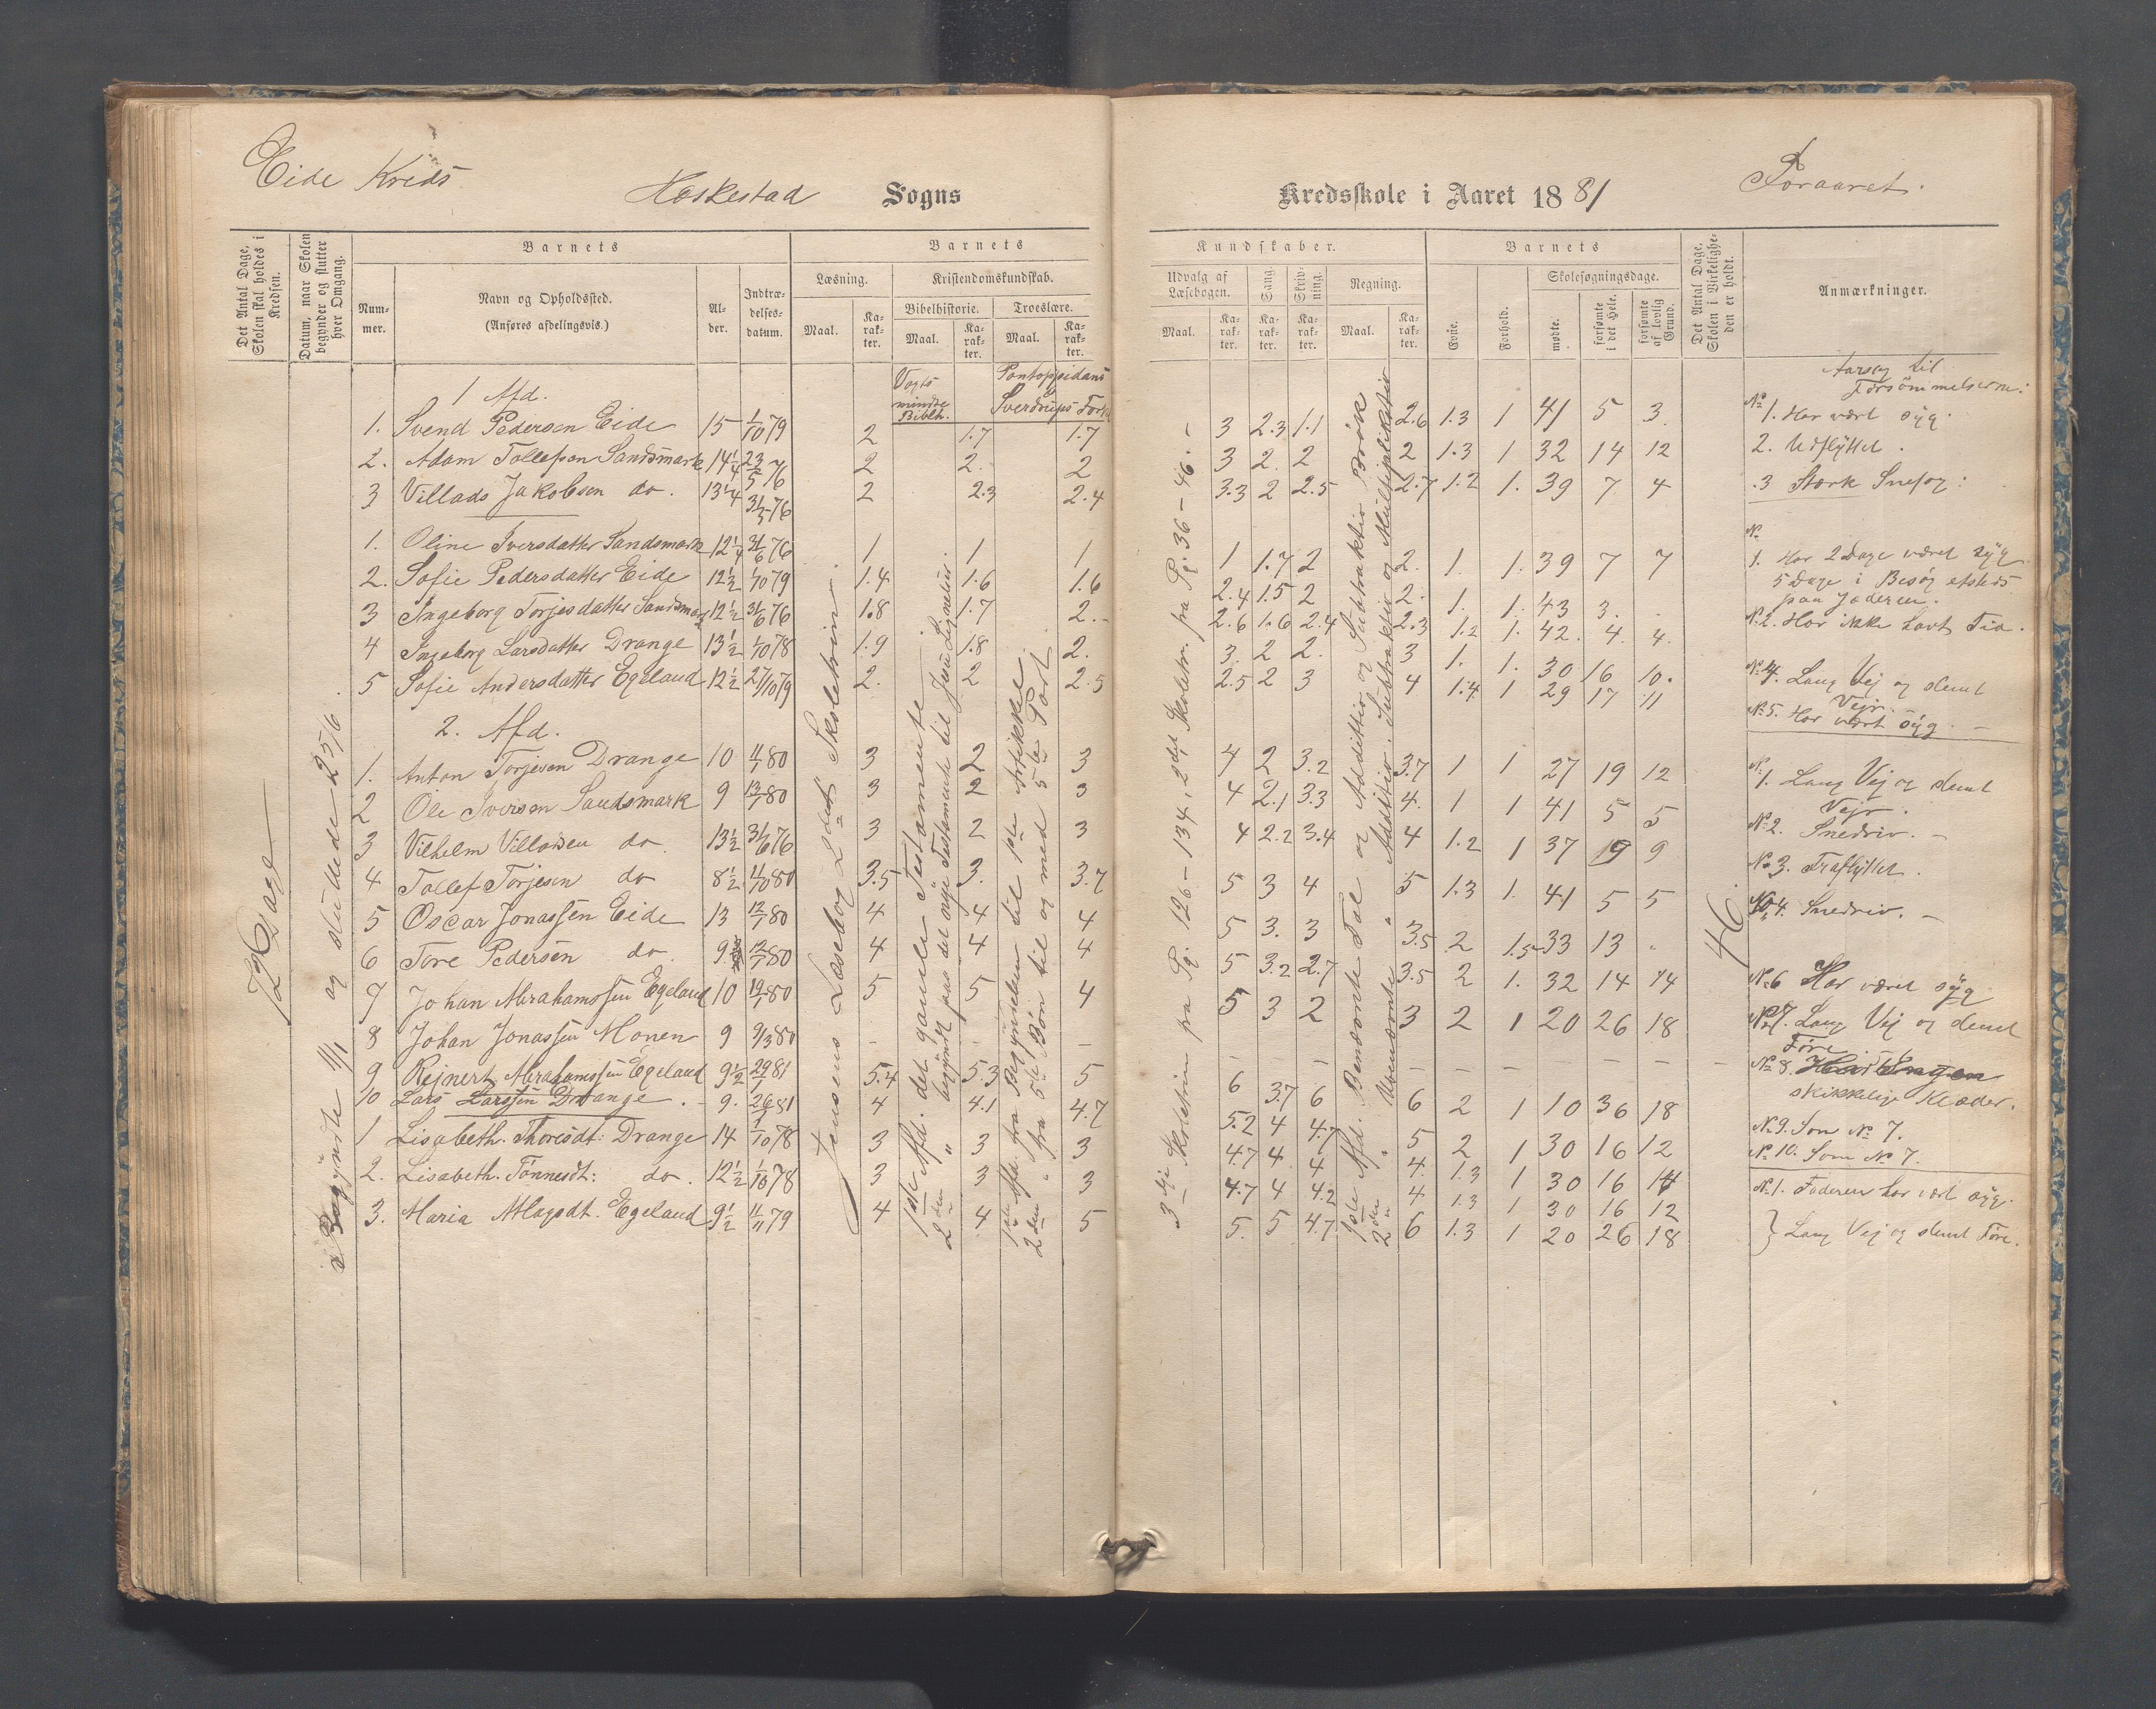 Eide Kreds
Heskestad Sogns
Kredsskole i Aaret 1881
Foraaret.
Det Antal Dage, Skolen skal holdes i Kredsen.
Datum, naar Skolen begynder og slutter hver Omgang.
Barnets
Nummer.
Navn og Opholdssted.
(Anføres afdelingsvis.)
Alder.
Indtrædelsesdatum.
Barnets
Læsning.
Kristendomskundskab.
Bibelhistorie.
Troeslære.
Maal.
Karakter.
Maal.
Karakter.
Maal.
Karakter.
Kundskaber.
Udvalg af Læsebogen.
Sang.
Skrivning.
Regning.
Maal.
Karakter.
Karakter.
Karakter.
Maal.
Karakter.
Barnets
Evne.
Forhold.
Skolesøgningsdage.
mødte.
forsømte i det Hele.
forsømte af lovlig Grund.
Det Antal Dage, Skolen i Virkeligheden er holdt.
Anmærkninger.
Aarsag til Forsømmelserne:
Vogts mindre Biblh.
Pontoppidans Sverdrups Fork
1 Afd.
1. Svend Pedersen Eide 15 1/10 79 2 1.7 1.7 3 2.3 1.1 2.6 1.3 1 41 5 3 No 1. Har vært syg.
2. Adam Tollefson Sandsmark 14 1/4 23/5 76 2 2. 2 3 2. 2 2 1.3 1 32 14 12 2. Udflyttet.
3 Villads Jakobsen do. 13 1/4 31/5 76 2 2.3 2.4 3.3 2 2.5 2.7 1.2 1. 39 7 4 3 Stærk Snefog:
1. Oline Iversdatter Sandsmark 12 1/4 31/6 76 1 1 1 1 1.7 2 2. 1. 1. 39 7 7 No 1. Har 2 Dage været syg
5 Dage i Besøg afsteds
paa Jæderen.
2. Sofie Pedersdatter Eide 12 1/2 1/10 79 1.4 1.6 1.6 2.4 1.5 2 2. 1. 1. 43 3. No 2. Har ikke havt Tid.
3 Ingeborg Torjesdatter Sandsmark 12 1/2 31/6 76 1.8 1.7 2. 2.6 1.6 2.4 2.3 1.2 1. 42. 4. 4.
4 Ingeborg Larsdatter Drange 13 1/2 1/10 78 1.9 1.8 2. 3. 2 2. 3 1. 1. 30 16 10. No 4. Lang Vej og slemt Vejr.
5 Sofie Andersdatter Egeland 12 1/2 27/10 79 2. 2 2.5 2.5 2 3 4 1.4 1 29 17 11 No 5. Har vært syg.
2. Afd.
1. Anton Torjesen Drange 10 11/1 80 3 2. 3 4 2 3.2 3.7 1 1 27 19 12 No 1. Lang Vej og slemt Vejr.
2 Ole Iversen Sandsmark 9 13/1 80 3 2 3 4 2.1 3.3 4. 1 1 41 5 5 No 2. Snedriv.
3 Vilhelm Villadsen do. 13 1/2 31/6 76 3 2 3 4 2.2 3.4 4 1.2 1 37 9 9 No 3. Fraflyttet.
4 Tollef Torjesen do 8 1/2 11/10 80 3.5 3. 3.7 5 3 4 5 1.3 1. 41 5 5 No 4. Snedriv.
5 Oscar Jonassen Eide 13 12/1 80 4 4 4 5 3. 3 3.5 2 1.5 33 13
6 Tore Pedersen do. 9 12/1 80 4 4 4 5 3.2 2.7 3.5 2 1. 32 14 14 No 6 Har været syg
7 Johan Abrahamssen Egeland 10 19/1 80 5 5 4 5 3 2 3 2 1 20 26 18 No 7. Lang Vej og slemt Føre
8 Johan Jonassen Monen 9 9/3 80 - - - - - - - - - - - - No 8. Har Ingen skikkelige Klæder.
9 Rejnert Abrahamssen Egeland 9 1/2 29/1 81 5.4 5.3 5 6 3.7 6 6 2 1 10 36 18 No 9. Som No 7.
10 Lars Larssen Drange. 9. 26/1 81 4 4.1 4.7 5.2 4 4.7 5 2 1 30 16 12 No 10. Som No 7.
1 Lisabeth Thoresdt: Drange 14 1/10 78 3 3 3 4.7 4 4 4. 1.3 1 30 16 14 No 1. Faderen har vært syg.
2. Lisabeth Tønnesdt: do. 12 1/2 1/10 78 3 3 3 4.7 4 4.2 4. 1.3 1 30 16 12
3. Maria Atlagsdt. Egeland 9 1/2 11/11 79 4 4 5 5. 5 4.7 6 1.3 1 20 26 18 } Lang Vej og slemt Føre.
126 Dage
Begyndte 11/1 og sluttede 25/6.
Jensens Læsebog 2det Skoletrin.
1ste Afd. det gamle Testamente.
2den " begyndt paa det nye Testamente til Jesu Lignelser.
1ste Afd. fra Begyndelsen til 1ste Artikkel
2den " fra 5te Bøn til og med 5te Part.
3dje Skoletrin fra Pg. 126 - 134, 2det Skoletr. fra Pg. 36 - 46. -
1ste Afd. Benævnte Tal og Addition og Subtraktion Brøk
2den " Ubenævnte " Addition, Subtraktion og Multiplikation
46.